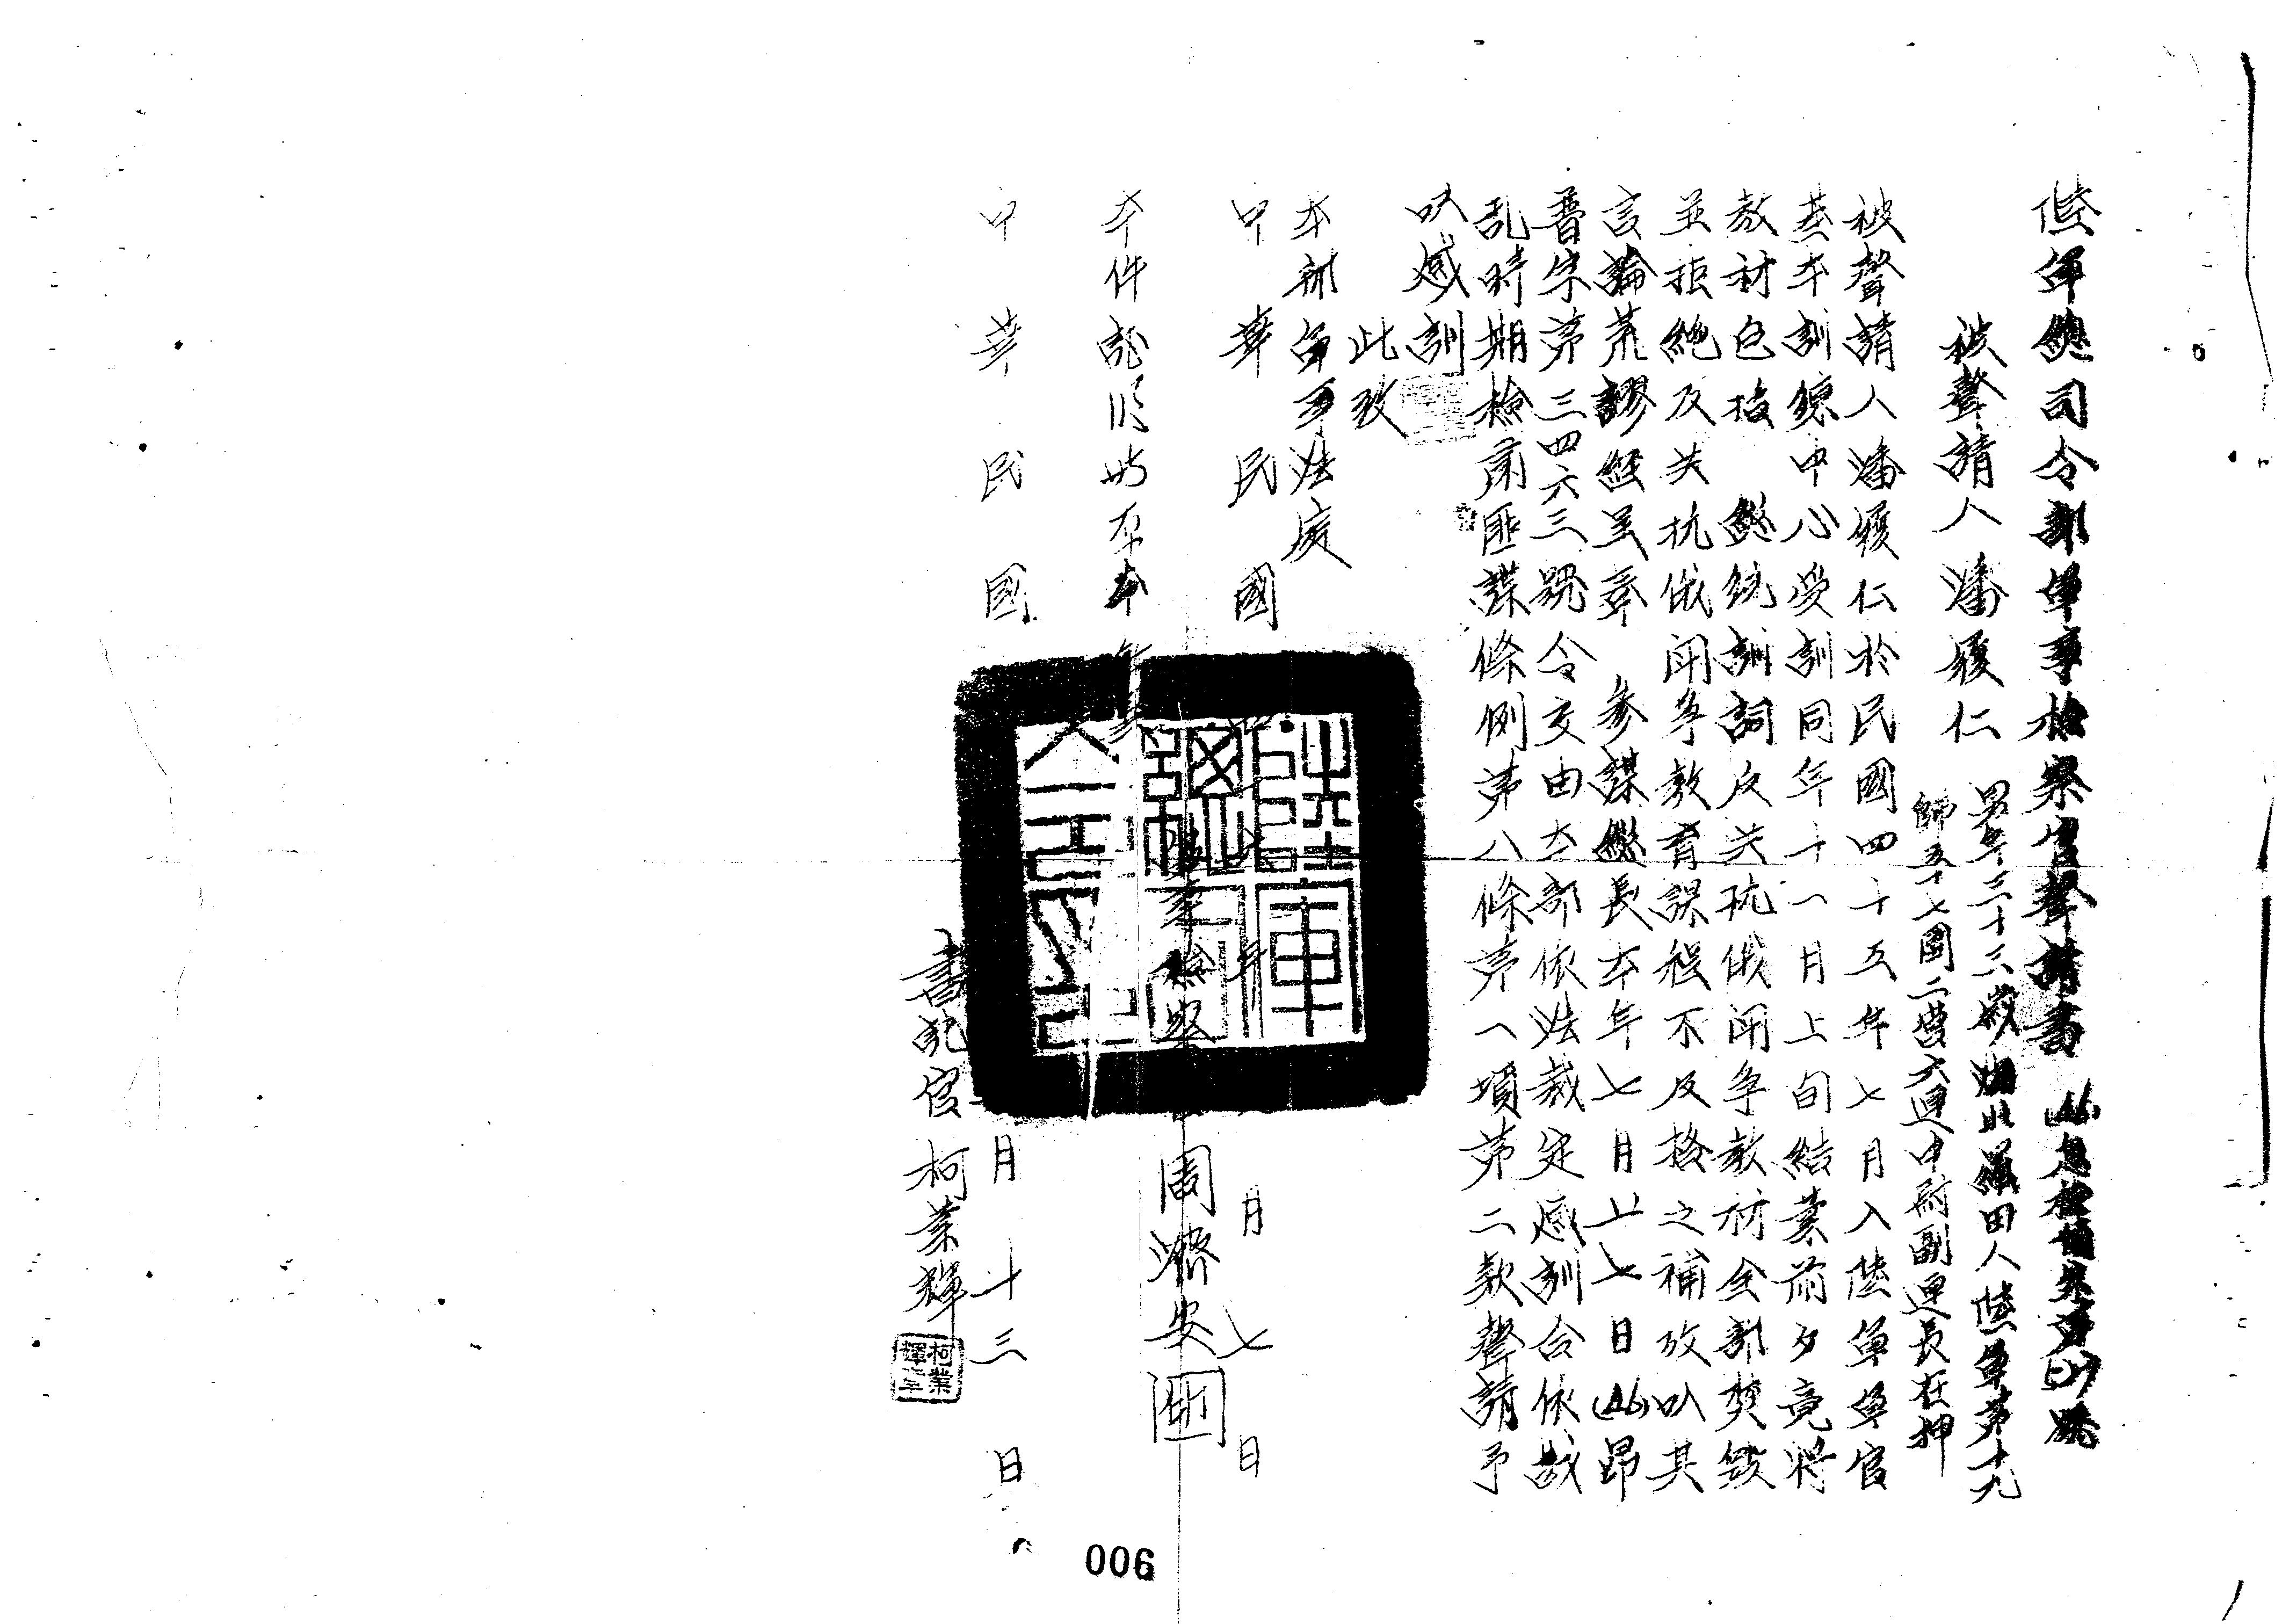 陸軍總司令部軍事檢察官聲請書
被聲請人潘履仁 男年三十三歲湖北羅田人陸軍第十九
師五十七團二營六連中尉副連長在押
被聲請人潘履仁於民國四十五年七月入陸軍軍官
基本訓練中心受訓同年十一月上旬結業前夕竟將
教材包括 總統訓詞反共抗俄鬥爭教材全部焚燬
並拒絕反共抗俄鬥爭教育課程不及格之補攷以其
言論荒謬經呈奉 參謀總長本年七月廿七日(46)昂
普字第三四六三號令交由本部依法裁定感訓合依戡
亂時期檢肅匪諜條例第八條第一項第二款聲請予
以感訓
此致
本部軍事法庭
中華民國 年 月七日
軍事檢察官周濟安
本件證明與原本無異
中華民國 月十三日
書記官柯業輝
柯業輝
陸軍總司令
006